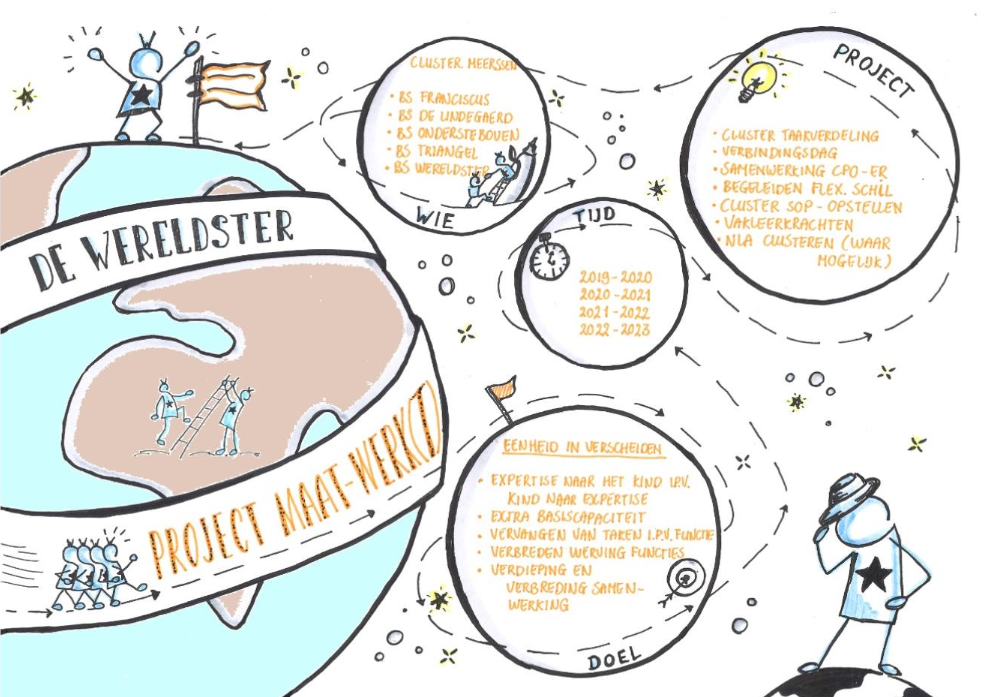 DE WERELDSTER
PROJECT MAAT-WERK(T)
CLUSTER MEERSSEN
• BS FRANCISCUS
• BS DE LINDEGAERD
• BS ONDERSTEBOVEN
• BS TRIANGEL
• BS WERELDSTER
WIE
TIJD
2019-2020
2020-2021
2021-2022
2022-2023
PROJECT
• CLUSTER TAAKVERDELING
• VERBINDINGSDAG
• SAMENWERKING CPO-ER
• BEGELEIDEN FLEX. SCHIL
• CLUSTER SOP-OPSTELLEN
• VAKLEERKRACHTEN
• NLA CLUSTEREN (WAAR
MOGELIJK)
EENHEID IN VERSCHEIDEN
• EXPERTISE NAAR HET KIND I.P.V.
KIND NAAR EXPERTISE
• EXTRA BASISCAPACITEIT
• VERVANGEN VAN TAKEN I.P.V. FUNCTIE
• VERBREDEN WERVING FUNCTIES
• VERDIEPING EN
VERBREDING SAMEN-
WERKING
DOEL